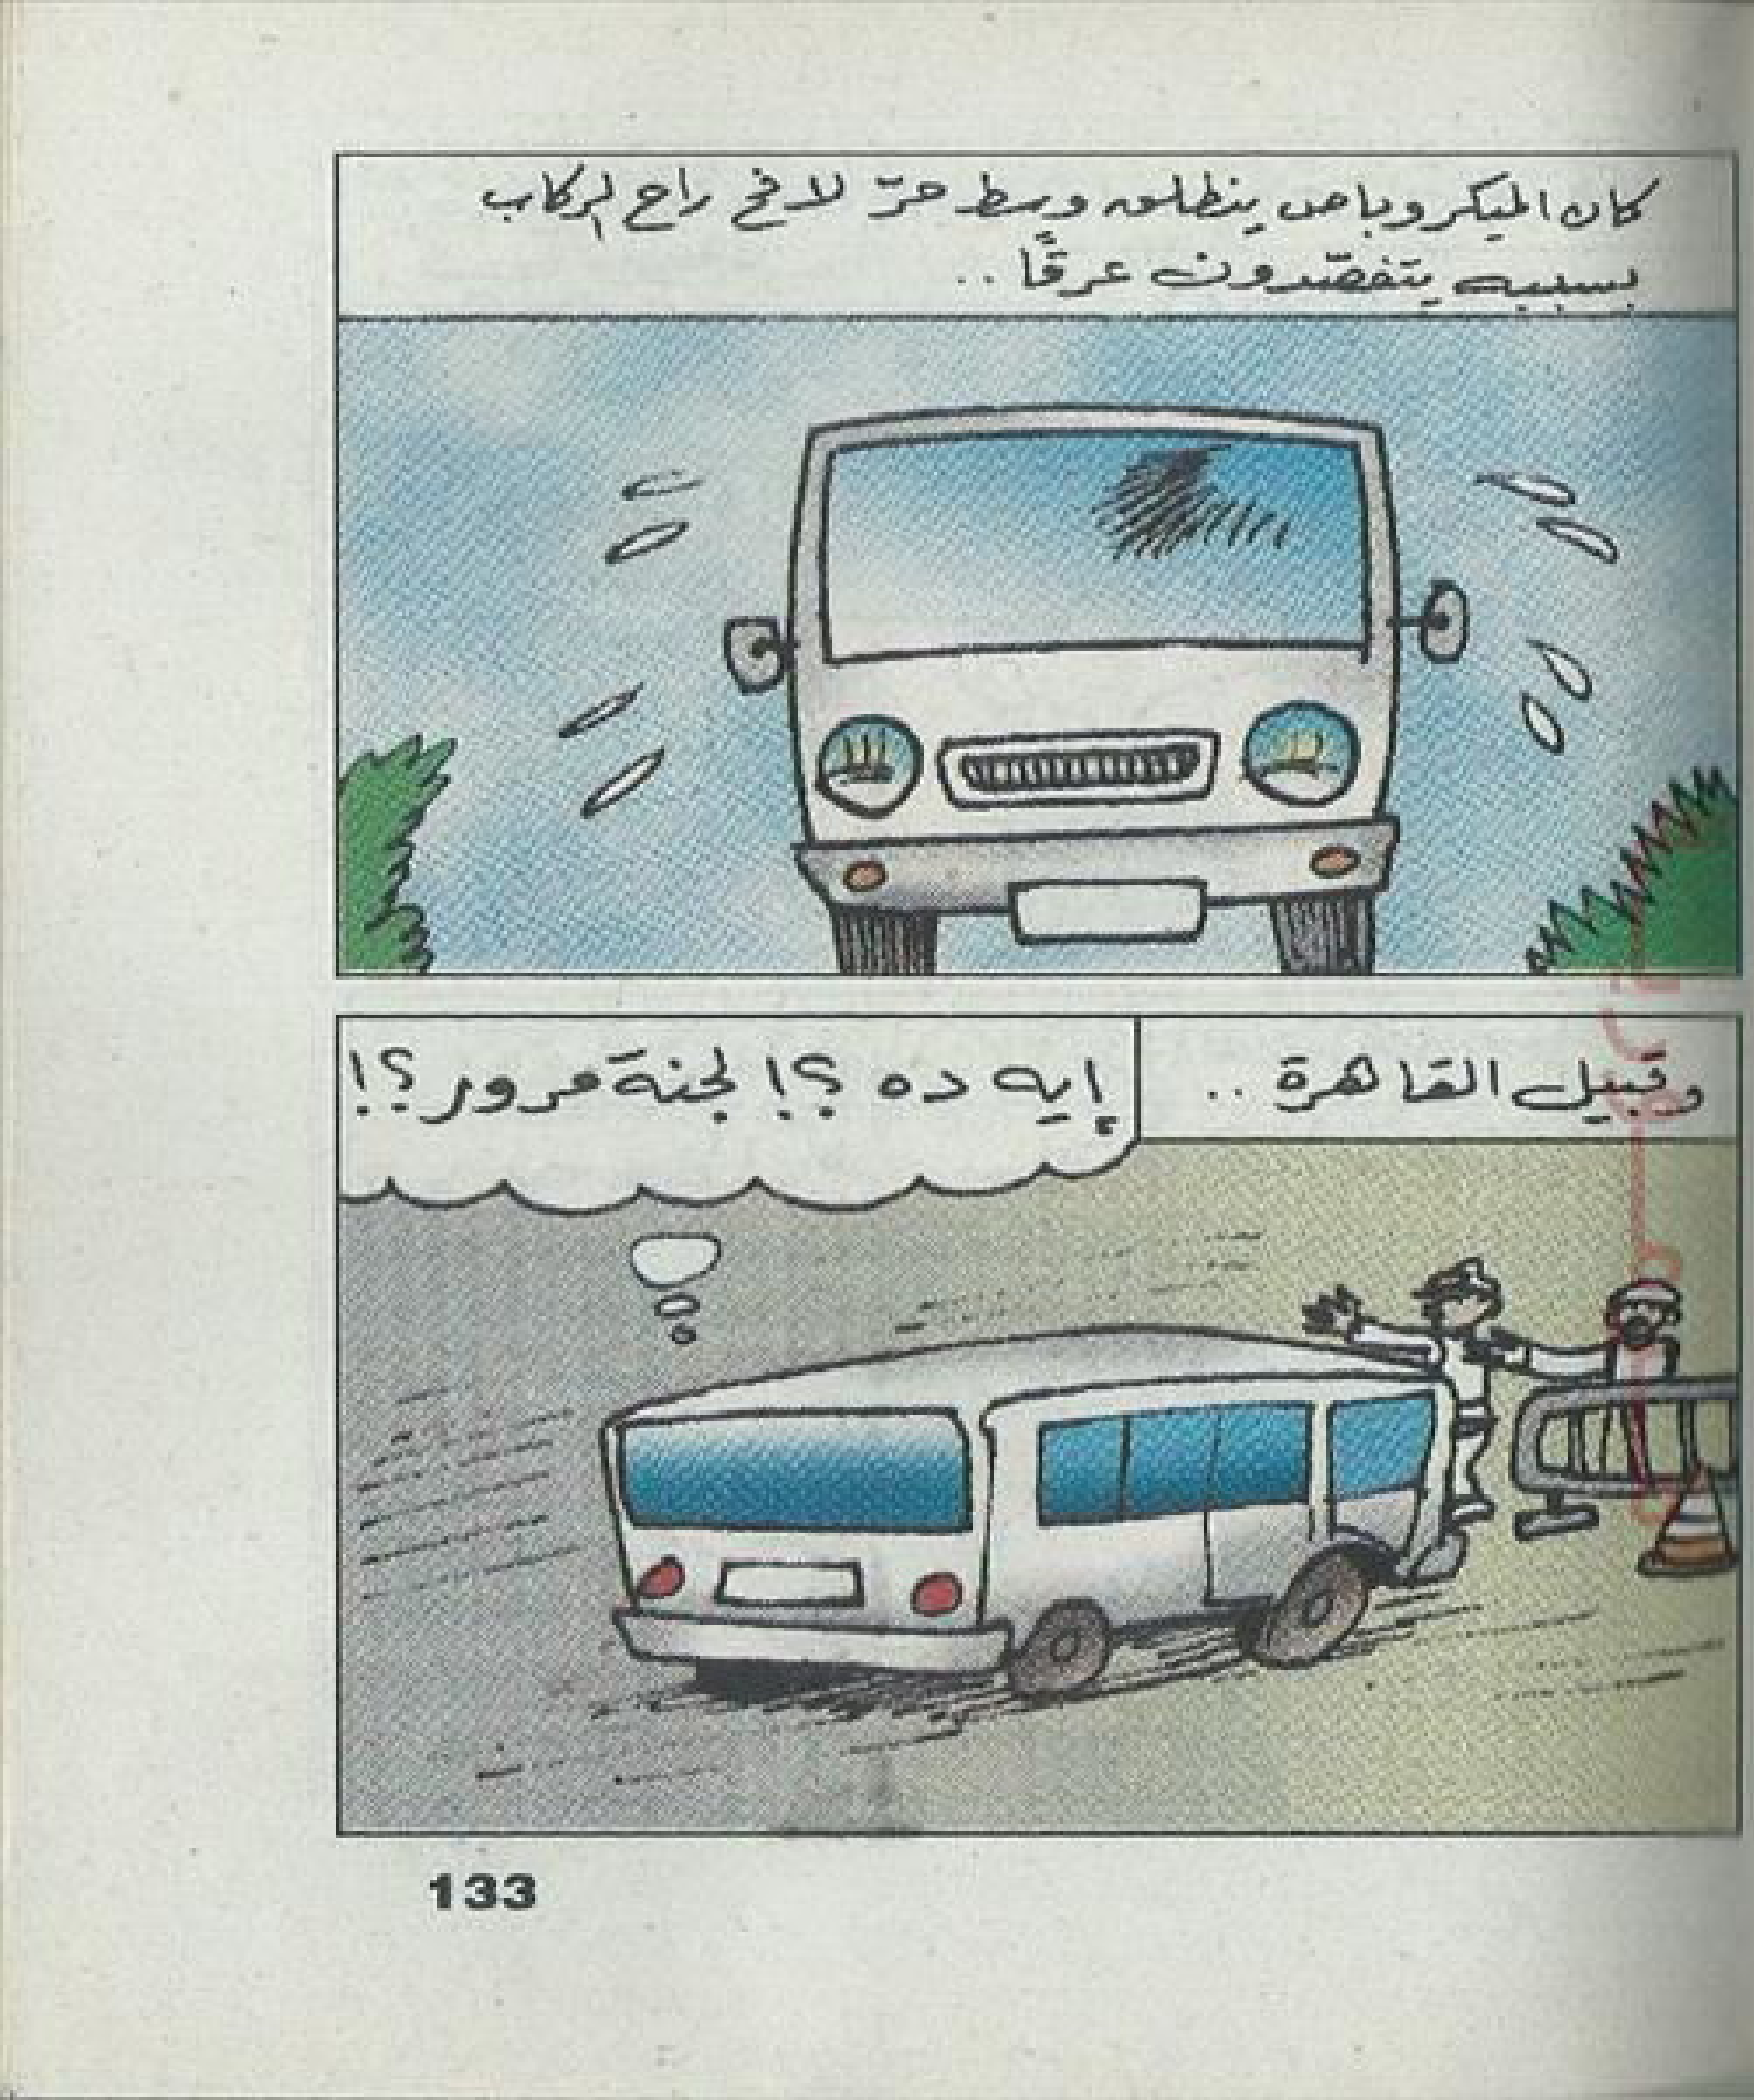 كان الميكروباص ينطلق وسط حرّ لافح راح الركاب
بسببه يتفصّدون عرقًا ..
وقبيل القاهرة ..
إيه ده ؟! لجنة مرور ؟!
133